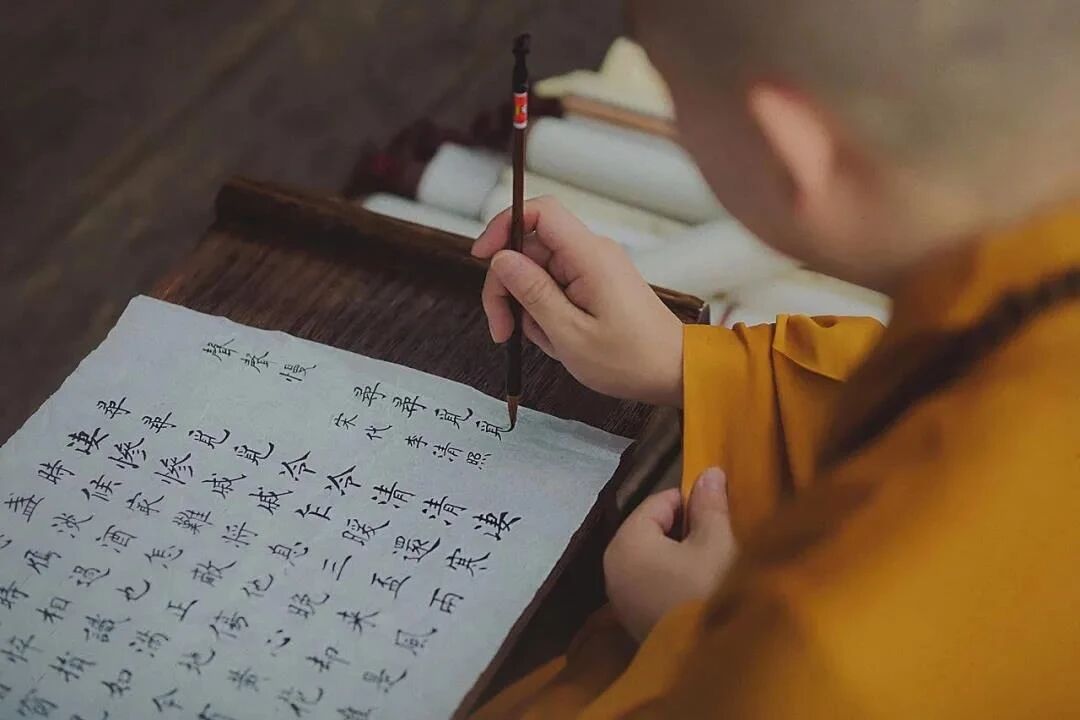 聲聲慢
尋尋覓覓
宋代 李清照
尋尋覓覓冷冷清清淒
淒慘慘戚戚乍暖還寒
時候最難將息三盃兩
盞淡酒怎敵他晚來風
雁過也正傷心却是
時相識滿地黃花堆
悴損如今有
窗